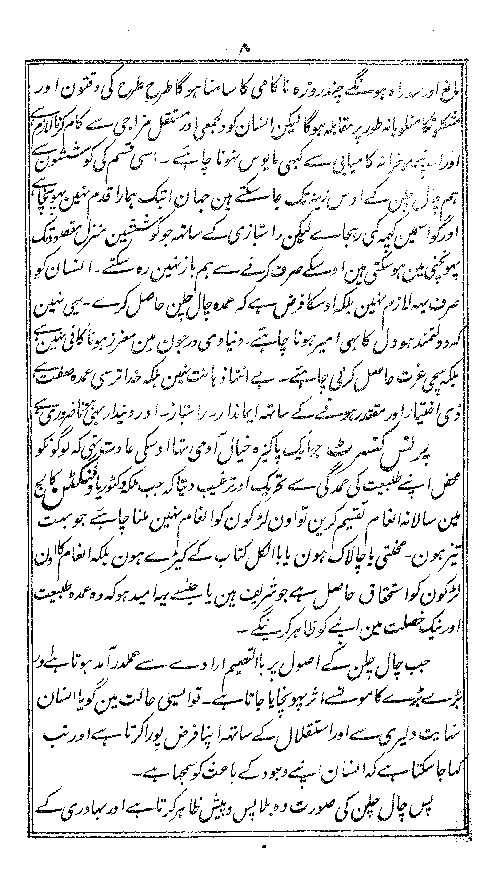 ۸
مانع اور سد راہ ہونگے چند روزہ ناکامی کا سامنا ہوگا طرح طرح کی دقتون اور
مشکلونکا مغلوبانہ طور پر مقابلہ ہوگا لیکن انسان کو دلجمعی اور مستقل مزاجی سے کام کرنا لازم ہے
اور اسے کامیابی سے کبھی مایوس نہونا چاہئے ۔ اسی قسم کی کوششون سے
ہم چال چلن کے اوس زینہ تک جا سکتے ہین جہان اتبک ہمارا قدم نہین پہونچا ہے
اور گو اسمین کچھ کمی رہجائے لیکن راستبازی کے ساتھ جو کوششین منزل مقصود تک
پہونچتی ہین ہوسکتی ہین اوسکے صرف کرنے سے ہم باز نہین رہ سکتے ۔ انسان کو
صرف یہہ لازم نہین بلکہ اوسکا فرض ہے کہ عمدہ چال چلن حاصل کرے ۔ یہی نہین
کہ دولتمند ہو دل کا بھی امیر ہونا چاہئے ۔ دنیاوی درجون مین معزز ہونا کافی نہین ہے
بلکہ سچی عزت حاصل کرنی چاہئے ۔ بے انتہا ذہانت نہین بلکہ خدا ترسی عمدہ صفت ہے
ذی اختیار اور مقتدر ہونے کے ساتھ ایماندار ۔ راستباز ۔ اور دیندار بھی ہونا ضروری ہے
پرنس کنسرٹ جو ایک پاکیزہ خیال آدمی تھا اوسکی عادت تھی کہ لوگونکو
محض اپنے طبیعت کی عمدگی سے تحریک اور ترغیب دیتا کہ جب ملکہ وکٹوریا ولنگٹن کالج
مین سالانہ انعام تقسیم کرین تو اون لڑکون کو انعام نہین ملنا چاہئے جو بہت
تیز ہون ۔ محنتی یا چالاک ہون یا بالکل کتاب کے کیڑے ہون بلکہ انعام کا اون
لڑکون کو استحقاق حاصل ہے جو شریف ہین یا جنسے یہہ امید ہو کہ وہ عمدہ طبیعت
اور نیک خصلت مین اپنے کو ظاہر کرینگے ۔
جب چال چلن کے اصول پر باالتعمیم ارادے سے عملدرآمد ہوتا ہے اور
بڑے بڑے کامونسے اثر پہونچایا جاتا ہے ۔ تو ایسی حالت مین گویا انسان
نہایت دلیری سے اور استقلال کے ساتھ اپنا فرض پورا کرتا ہے اور تب
کہا جا سکتا ہے کہ انسان اپنے وجود کے باعث کو سمجھا ہے ۔
پس چال چلن کی صورت وہ بلا پس و پیش ظاہر کرتا ہے اور بہادری کے